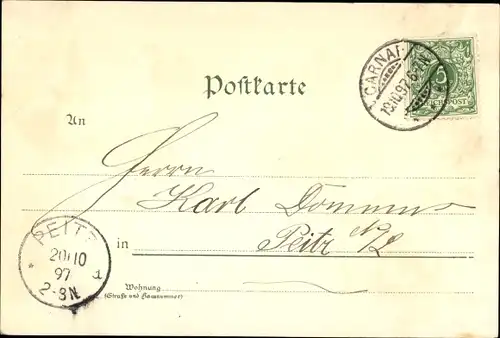 CARNAP
19.10.97. 6-7N
5
REICHSPOST
Postkarte
An
Herrn
Karl Dommus
in Peitz N/L
PEITZ
20/10
97
2-3N
Wohnung
(Straße und Hausnummer)